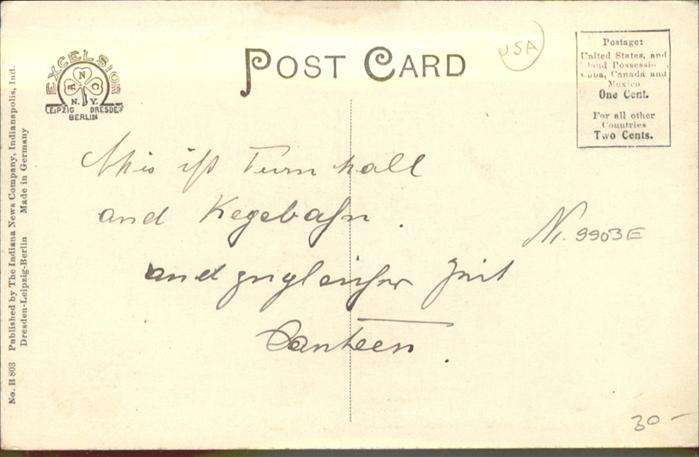 EXCELSIOR
A N C
N.Y.
LEIPZIG DRESDEN
BERLIN
POST CARD
USA
Postage:
United States, and
Island Possessions
Cuba, Canada and
Mexico
One Cent.
For all other
Countries
Two Cents.
This ist Turn hall
and Kegebahn.
and zugleicher Zeit
Canteen.
Nr. 9903E
30-
No. H 803 Published by The Indiana News Company, Indianapolis, Ind.
Dresden-Leipzig-Berlin Made in Germany